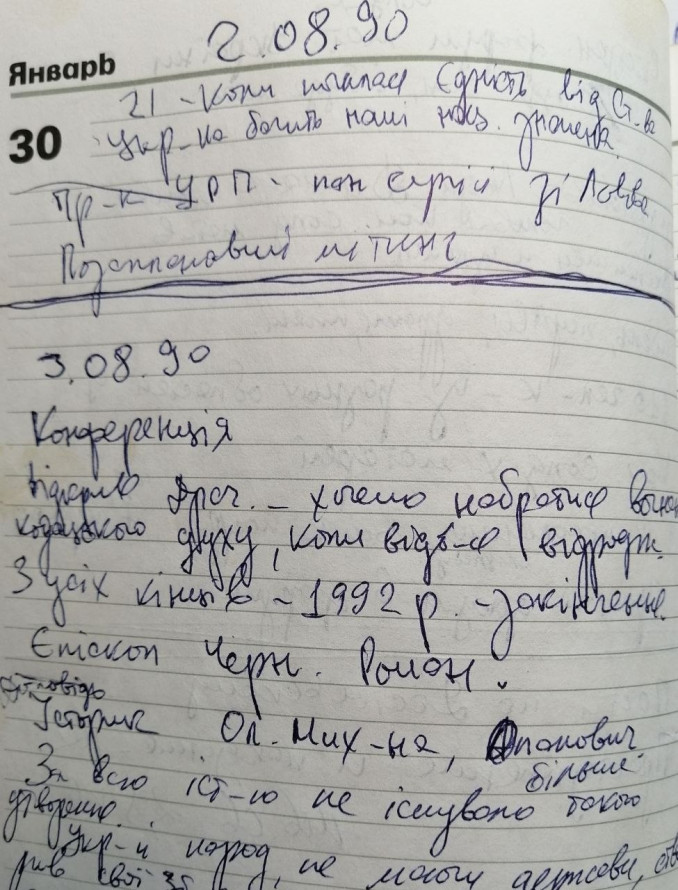 2.08.90
Январь
30
21 - Коли почалася Єдність від Ст-ва
Укр-на бачить наші нац. знамена.
Пр-к УРП - пан Сергій зі Львова
Позаплановий мітинг
3.08.90
Конференція
Відкрив - хочемо набратися
козацького духу, коли відб-ся відродж.
З усіх кінців - 1992 р. - закінчення.
Єпіскоп Черн. Роман.
Історик Ол. Мих-на, Апанович
За всю іст-ю не існувало такого більше
утворення.
Укр-й народ, не маючи держави, ство
рив свої зб